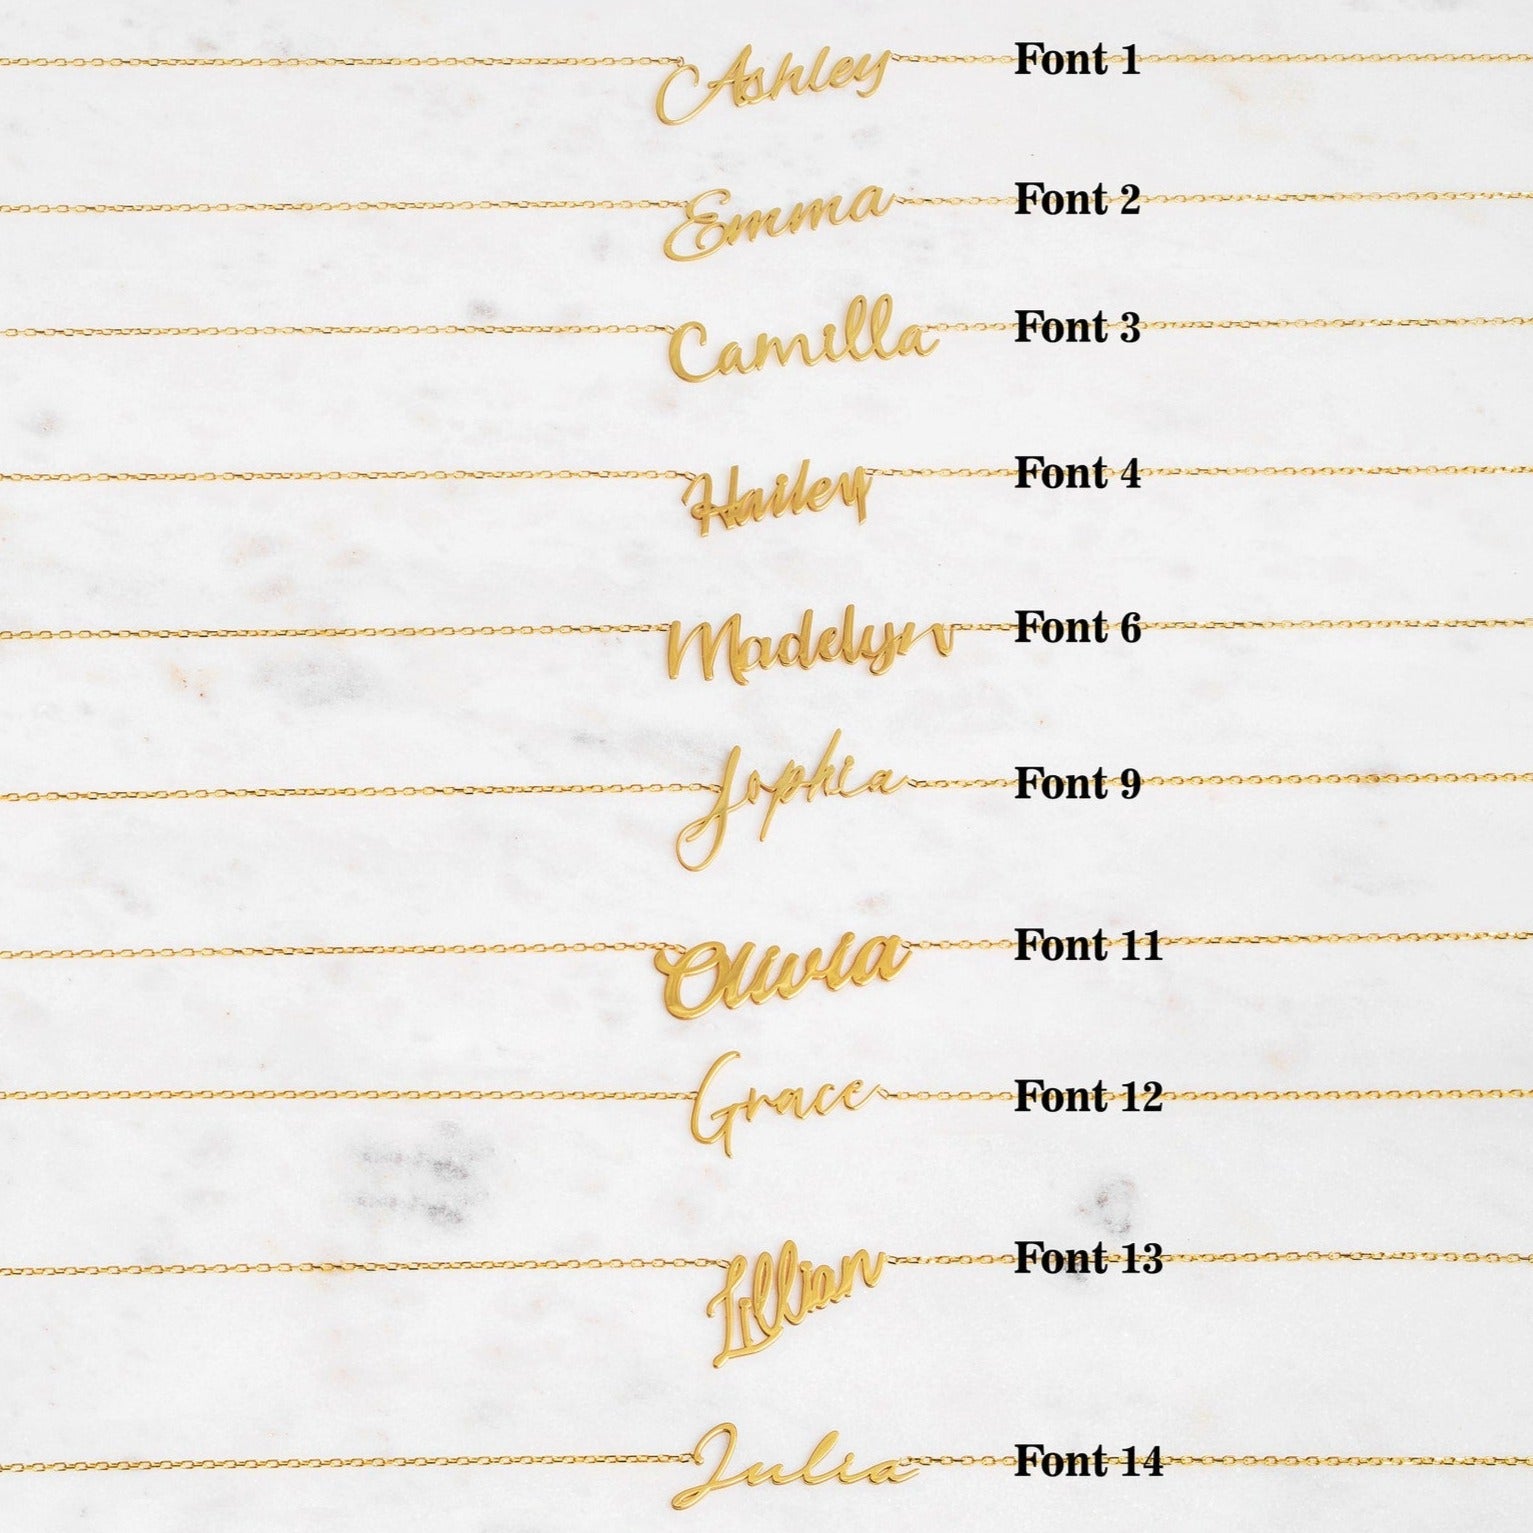 Ashley Font 1
Emma Font 2
Camilla Font 3
Hailey Font 4
Madelyn Font 6
Sophia Font 9
Olivia Font 11
Grace Font 12
Lillian Font 13
Julia Font 14